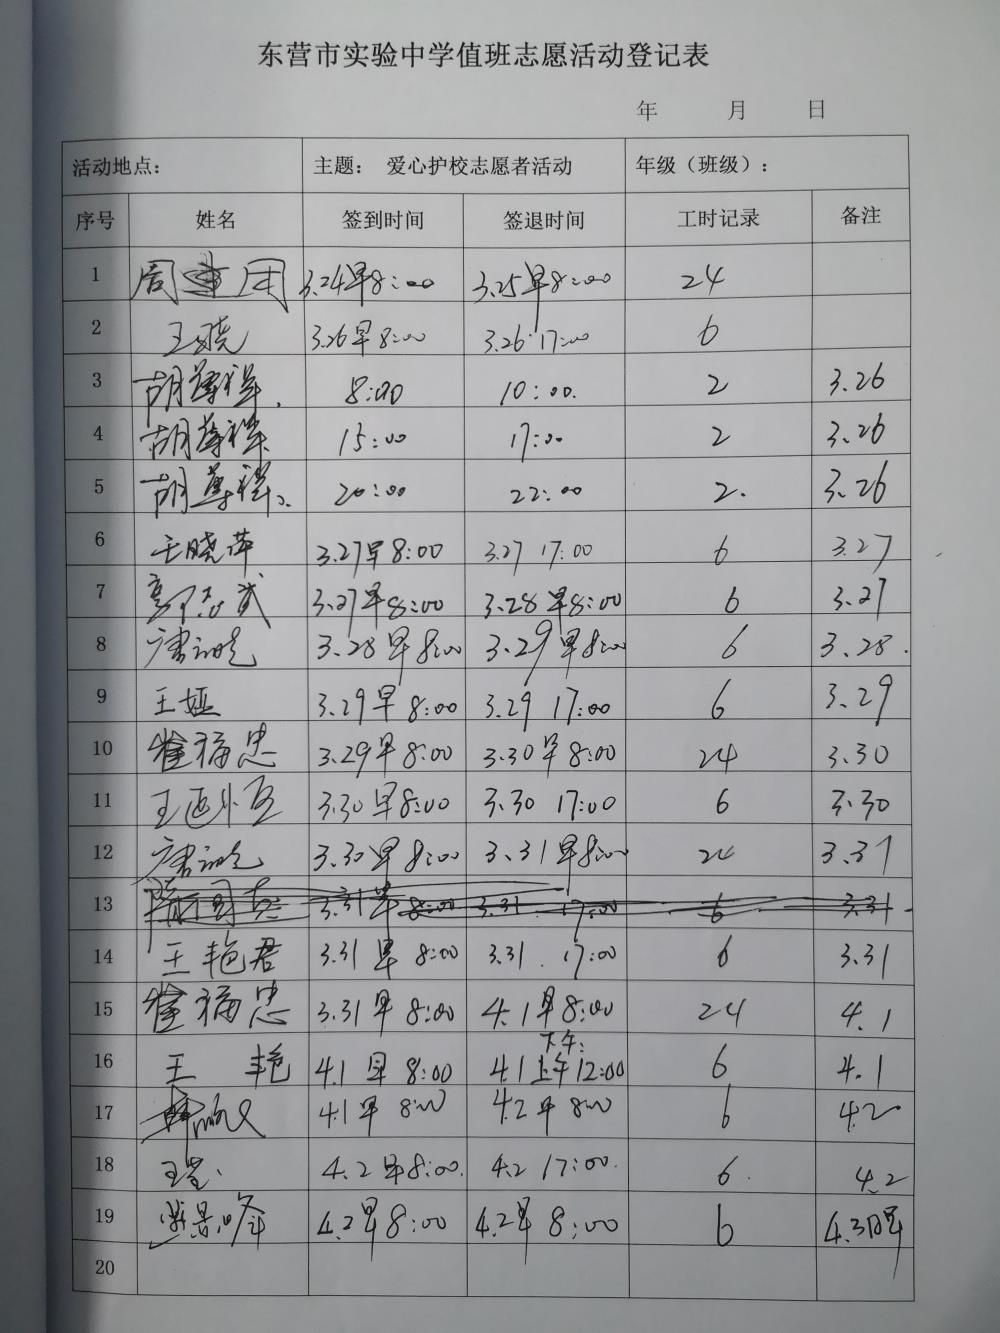 东营市实验中学值班志愿活动登记表
年 月 日
活动地点: 主题: 爱心护校志愿者活动 年级(班级):
序号 姓名 签到时间 签退时间 工时记录 备注
1 周 3.24早8:00 3.25早8:00 24
2 王晓 3.26早8:00 3.26 17:00 6
3 胡 8:00 10:00. 2 3.26
4 胡 15:00 17:00 2 3.26
5 胡 20:00 22:00 2. 3.26
6 王晓萍 3.27早8:00 3.27 17:00 6 3.27
7 3.27早8:00 3.28早8:00 6 3.27
8 3.28早8:00 3.29早8:00 6 3.28.
9 王娅 3.29早8:00 3.29 17:00 6 3.29
10 崔福忠 3.29早8:00 3.30早8:00 24 3.30
11 王 3.30早8:00 3.30 17:00 6 3.30
12 3.30早8:00 3.31早8:00 24 3.31
13 3.31早8:00 3.31 17:00 6 3.31
14 王艳君 3.31早8:00 3.31.17:00 6 3.31
15 崔福忠 3.31早8:00 4.1早8:00 24 4.1
下午:
16 王艳 4.1早8:00 4.1上午12:00 6 4.1
17 4.1早8:00 4.2早8:00 6 4.2
18 王 4.2早8:00. 4.2 17:00. 6. 4.2
19 景峰 4.2早8:00 4.2早8:00 6 4.3
20